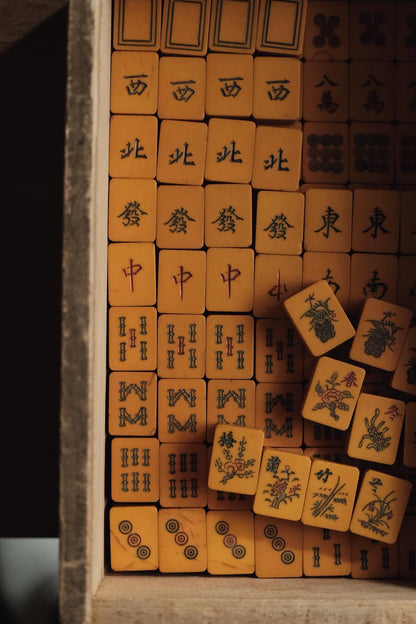 西 西 西 西 八萬 八萬
北 北 北 北
發 發 發 發 東 東
中 中 中 中 南 南
竹